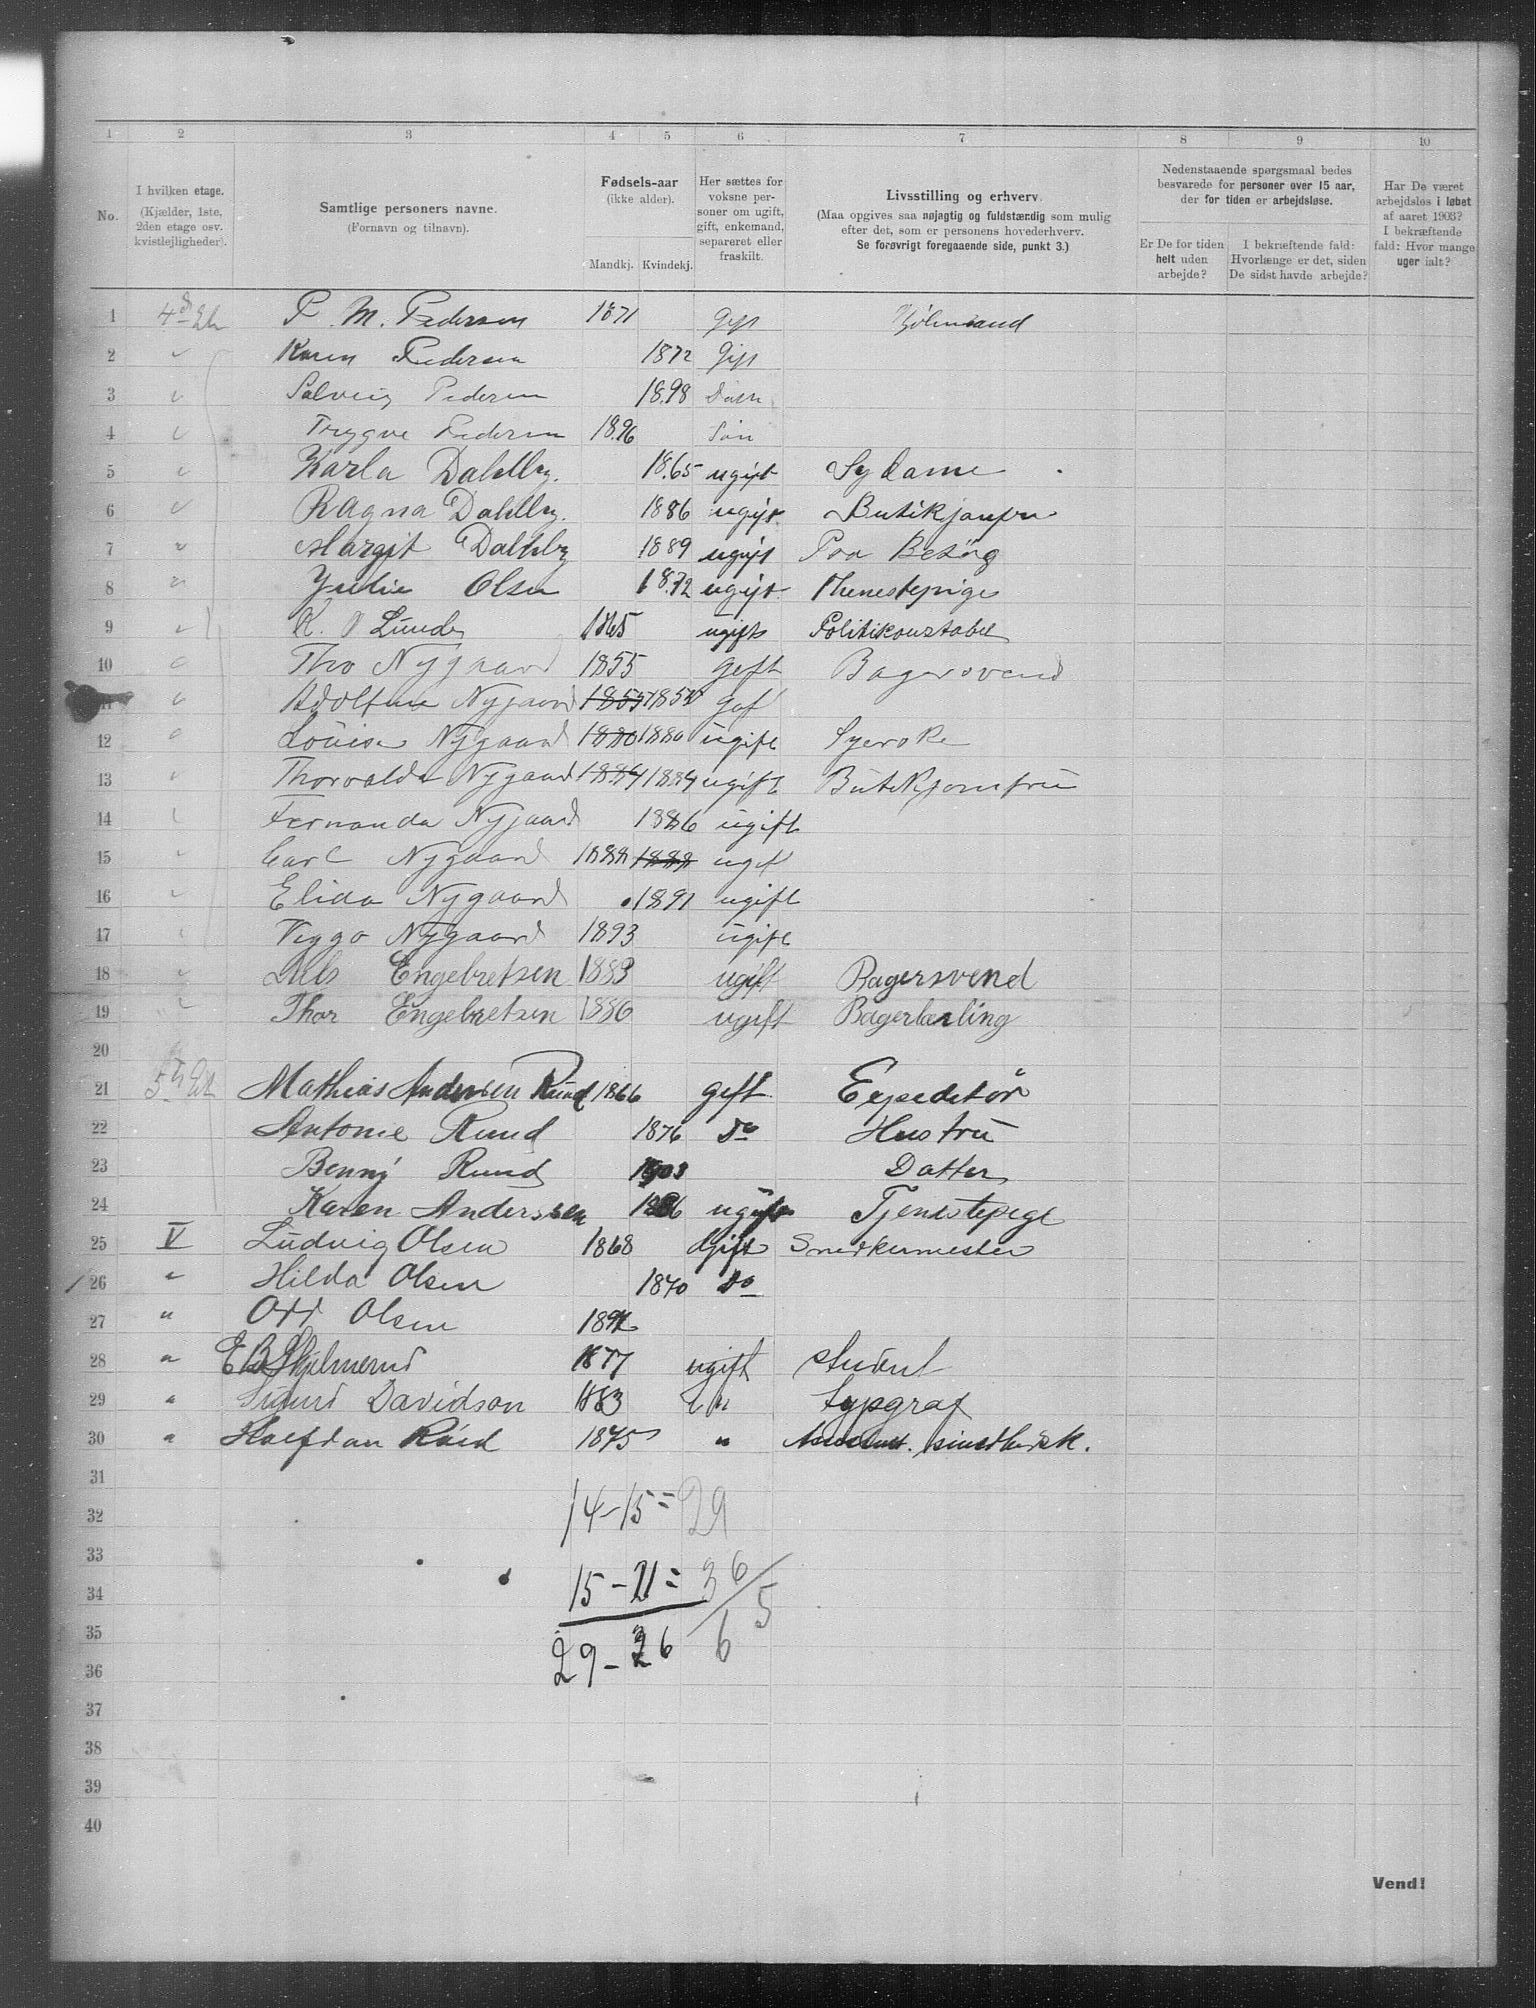 1 2 3 4 5 6 7 8 9 10
No.
I hvilken etage. (Kjælder, 1ste, 2den etage osv. kvistlejligheder).
Samtlige personers navne. (Fornavn og tilnavn).
Fødsels-aar (ikke alder).
Mandkj. Kvindekj.
Her sættes for voksne personer om ugift, gift, enkemand, separeret eller fraskilt.
Livsstilling og erhverv. (Maa opgives saa nøjagtig og fuldstændig som mulig efter det, som er personens hovederhverv. Se forøvrigt foregaaende side, punkt 3.)
Nedenstaaende spørgsmaal bedes besvarede for personer over 15 aar, der for tiden er arbejdsløse.
Er De for tiden helt uden arbejde?
I bekræftende fald: Hvorlænge er det, siden De sidst havde arbejde?
Har De været arbejdsløs i løbet af aaret 1903? I bekræftende fald: Hvor mange uger ialt?
1 P. M. Pedersen 1871 Gift
2 Karen Pedersen 1872 Gift
3 Solveig Pedersen 1898
4 Trygve Pedersen 1896 Søn
5 Karla Dahlby. 1865 ugift Sydame
6 Ragna Dahlby. 1886 ugift Butikjomfru
7 Margit Dahlby 1889 ugift Paa Besøg
8 Julie Olsen 1872 ugift Thenestepige
9 K. O Lunde 1865 ugift Politikonstabel
10 Tho Nygaard 1855 geft Bagersvend
11 Adolfine Nygaard 1855 gef
12 Louise Nygaard 1880 1880 ugift Syerske
13 Thorvalda Nygaard 1884 1884 ugift Butikjomfru
14 Fernanda Nygaard 1886 ugift
15 Carl Nygaard 1888 1888 ugift
16 Elida Nygaard 1891 ugift
17 Viggo Nygaard 1893 ugift
18 Nils Engebretsen 1883 ugift Bagersvend
19 Thor Engebretsen 1886 ugift Bagerlærling
20
21 Mathias Andersen Ruud 1866 geft Expeditør
22 Antonie Ruud 1876 Do Hustru
23 Benny Ruud 1903 Datter
24 Karen Anderssen 1886 ugift Tjenestepige
25 V Ludvig Olsen 1868 Gift Snedkermester
26 " Hilda Olsen 1870 Do
27 " Odd Olsen
28 " 1877 ugift student
29 " Sigurd Davidson 1883 " typograf
30 " Halfdan 1875 "
31
32
33
34
35
36
37
38
39
40
14-15=29
15-21=36
29-36 65
Vend!